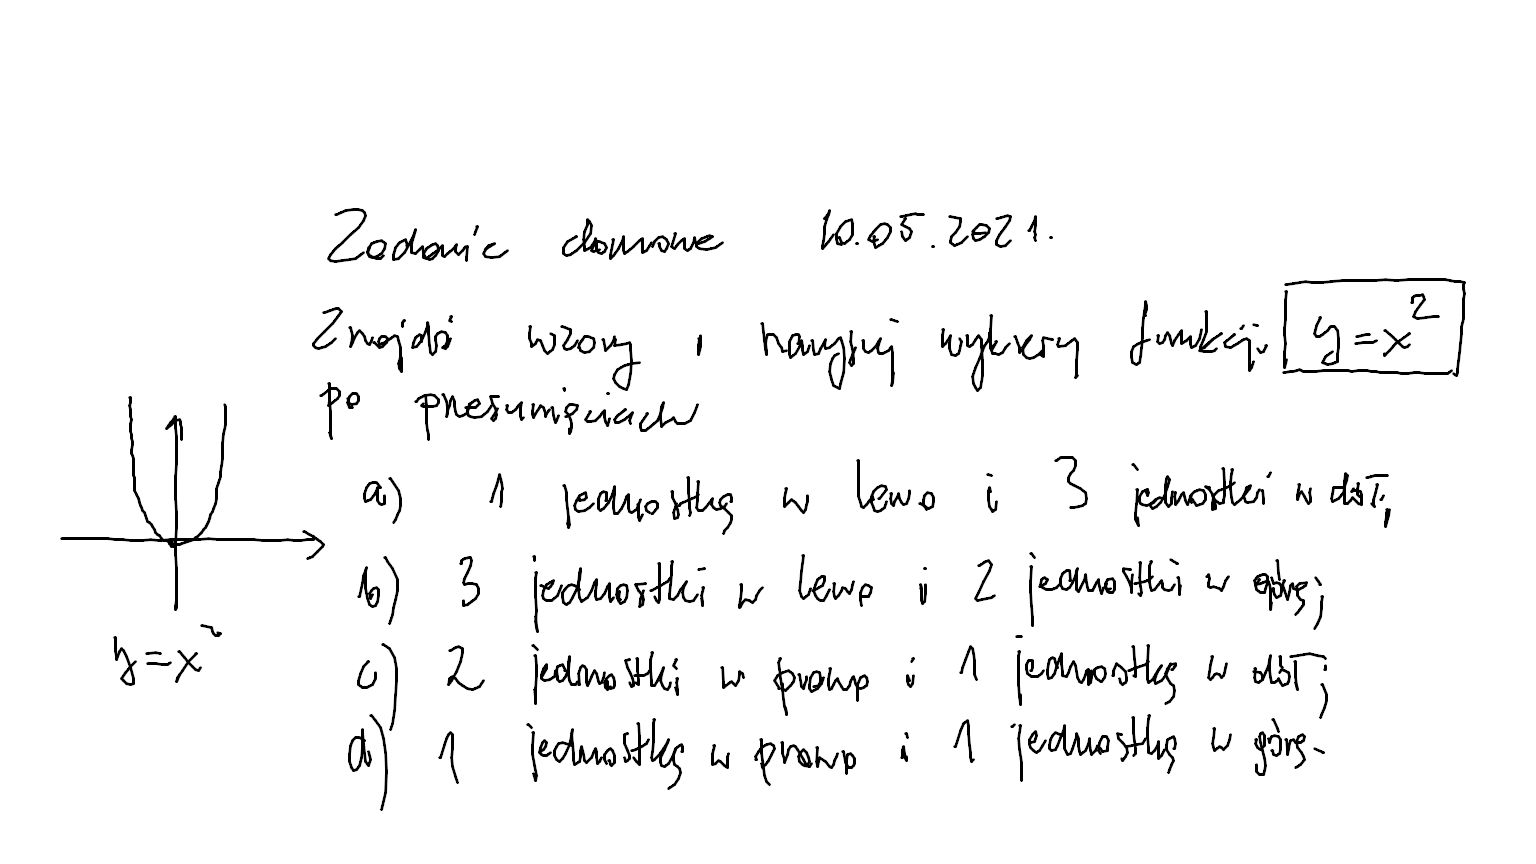 Zadanie domowe 10.05.2021.
Znajdź wzory i narysuj wykresy funkcji y=x²
po przesunięciach
a) 1 jednostkę w lewo i 3 jednostki w dół,
b) 3 jednostki w lewo i 2 jednostki w górę;
c) 2 jednostki w prawo i 1 jednostkę w dół;
d) 1 jednostkę w prawo i 1 jednostkę w górę.
y=x²